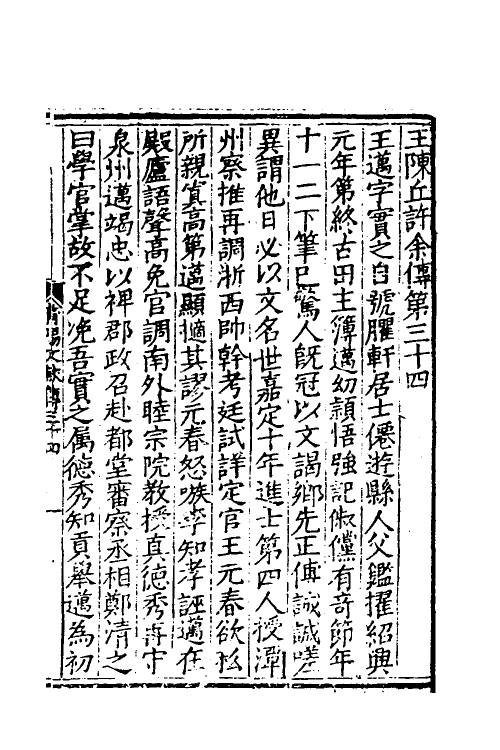 王陳丘許余傳第三十四
王邁字實之自號臞軒居士僊遊縣人父鑑擢紹興
元年第終古田主簿邁幼頴悟強記俶儻有竒節年
十一二下筆已驚人旣冠以文謁鄉先正傅誠誠嗟
異謂他日必以文名世嘉定十年進士第四人授潭
州察推再調浙西帥幹考廷試詳定官王元春欲私
所親寘高第邁顯擿其謬元春怒嗾李知孝誣邁在
殿廬語聲髙免官調南外睦宗院教授真德秀再守
泉州邁竭忠以裨郡政召赴都堂審察丞相鄭清之
曰學官掌故不足浼吾實之属德秀知貢舉邁為初
莆陽文獻傳三十四